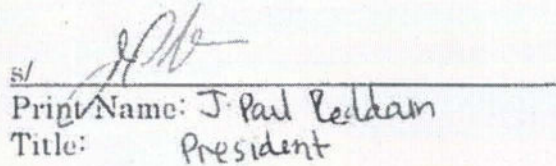 s/
Print Name: J. Paul Reddam
Title: President